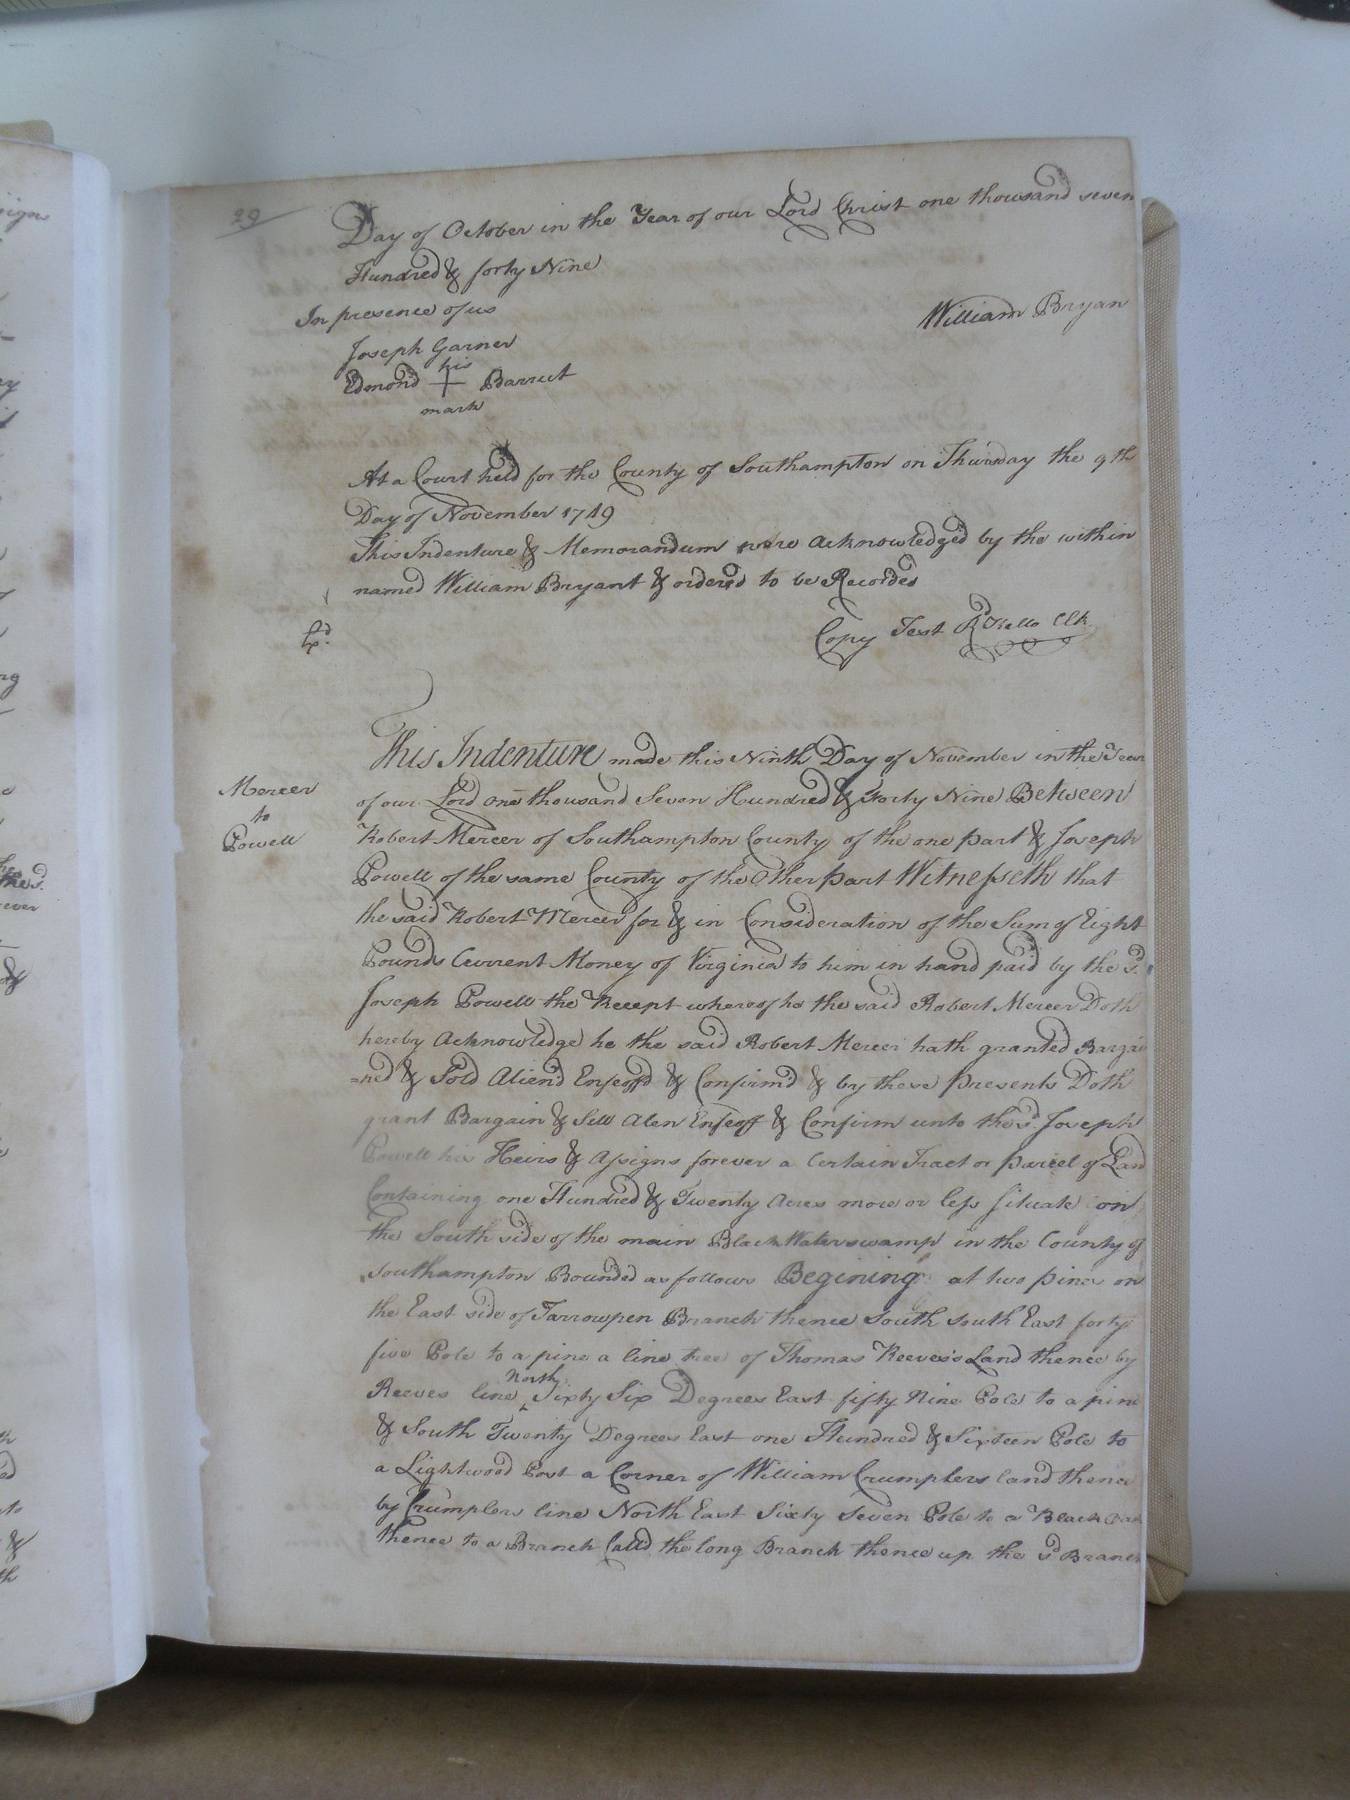 29
Day of October in the Year of our Lord Christ one thousand seven
Hundred & forty Nine
In presence of us
William Bryan
Joseph Garner
his
Edmond + Barrut
mark
At a Court held for the County of Southampton on Thursday the 9th
Day of November 1749
This Indenture & Memorandum were acknowledged by the within
named William Bryant & ordered to be Recorded
Copy Test Rd Kello Clk
This Indenture made this Ninth Day of November in the Year
of our Lord one thousand Seven Hundred & Forty Nine Between
Mercer
to
Powell
Robert Mercer of Southampton County of the one part & Joseph
Powell of the same County of the Other part Witnesseth that
the said Robert Mercer for & in Consideration of the Sum of Eight
Pounds Current Money of Virginia to him in hand paid by the sd.
Joseph Powell the Receept whereof he the said Robert Mercer Doth
hereby acknowledge he the said Robert Mercer hath granted Bargai
=ned & Sold Aliend Enfeoffd & Confirmd & by these presents Doth
grant Bargain & Sell alen Enfeoff & Confirm unto the sd Joseph
Powell his Heirs & assigns forever a Certain Tract or parcel of Land
Containing one Hundred & Twenty acres more or less situate on
the South side of the main Black Water swamp in the County of
Southampton Bounded as follows Begining at two pines on
the East side of Tarrowpen Branch thence South South East forty
five Pole to a pine a line tree of Thomas Reeves's Land thence by
Reeves line North Sixty Six Degrees East fifty Nine Pole to a pine
& South Twenty Degrees East one Hundred & Sixteen Pole to
a Lightwood Post a Corner of William Crumplers land thence
by Crumplers line North East Sixty Seven Pole to a Black Oak
thence to a Branch Calld the long Branch thence up the sd Branch